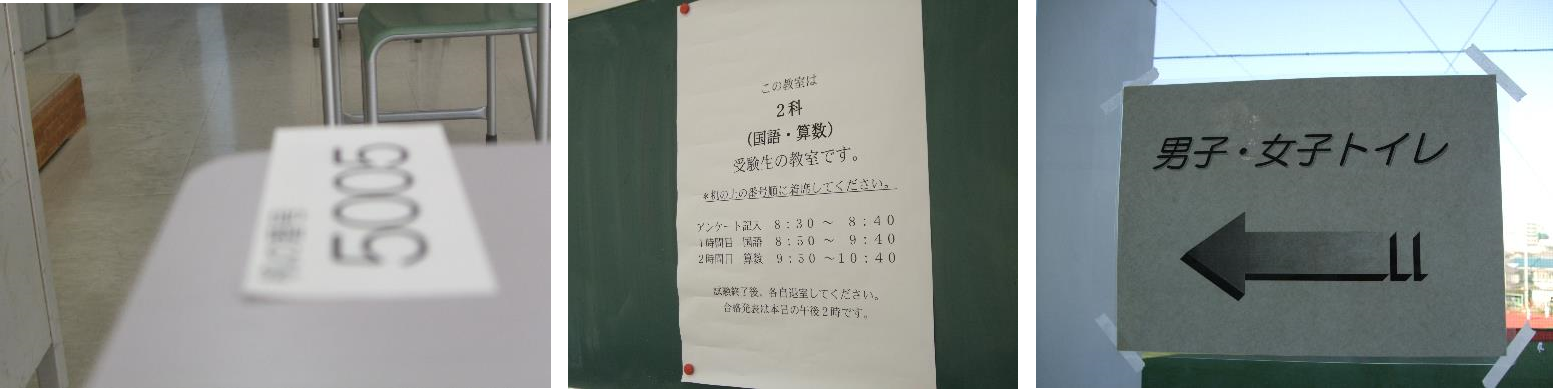 5005
この教室は
２科
（国語・算数）
受験生の教室です。
＊机の上の番号順に着席してください。
アンケート記入　８：３０　～　８：４０
１時間目　国語　８：５０　～　９：４０
２時間目　算数　９：５０　～１０：４０
試験終了後、各自退室してください。
合格発表は本日の午後２時です。
男子・女子トイレ